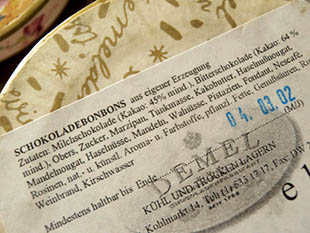 SCHOKOLADEBONBONS aus eigener Erzeugung
Zutaten: Milchschokolade (Kakao: 45% mind.), Bitterschokolade (Kakao: 64 %
mind.), Obers, Zucker, Marzipan, Tunkmasse, Kakobutter, Haselnußnougat,
Mandelnougat, Haselnüsse, Mandeln, Walnüsse, Pistazien, Fondant, Nescafe,
Rosinen, nat.- u künstl. Aroma- u. Farbstoffe, pflanzl. Fette, Rum
Weinbrand, Kirschwasser
04. 03. 02
Mindestens haltbar bis Ende:
(MJ)
DEMEL
KÜHL UND TROCKEN LAGERN
Kohlmarkt 14